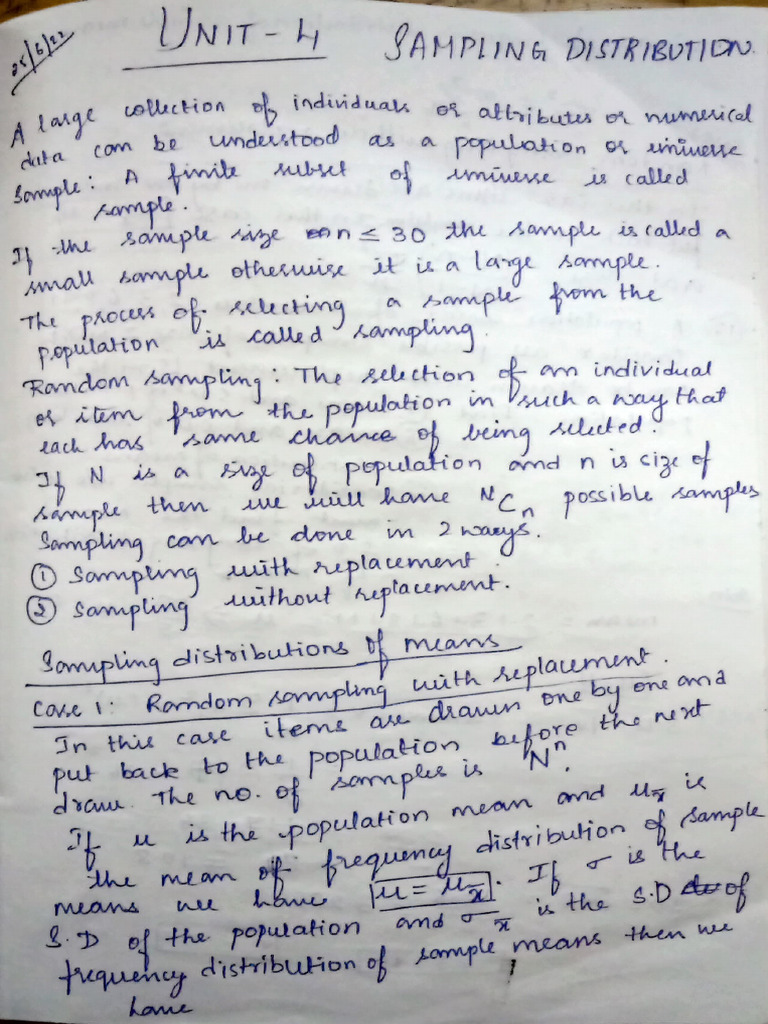 25/6/22
UNIT - 4 SAMPLING DISTRIBUTION
A large collection of individuals or attributes or numerical
data can be understood as a population or universe
Sample: A finite subset of universe is called
sample.
If the sample size n ≤ 30 the sample is called a
small sample otherwise it is a large sample.
The process of selecting a sample from the
population is called sampling.
Random sampling: The selection of an individual
or item from the population in such a way that
each has same chance of being selected.
If N is a size of population and n is cize of
sample then we will have ᴺCₙ possible samples
Sampling can be done in 2 ways.
① Sampling with replacement
② Sampling without replacement.
Sampling distributions of means
Case 1: Random sampling with replacement.
In this case items are drawn one by one and
put back to the population before the next
draw. The no. of samples is Nⁿ.
If u is the population mean and u_x̄ is
the mean of frequency distribution of sample
means we have u = u_x̄. If σ is the
S.D of the population and σ_x̄ is the S.D of
frequency distribution of sample means then we
have